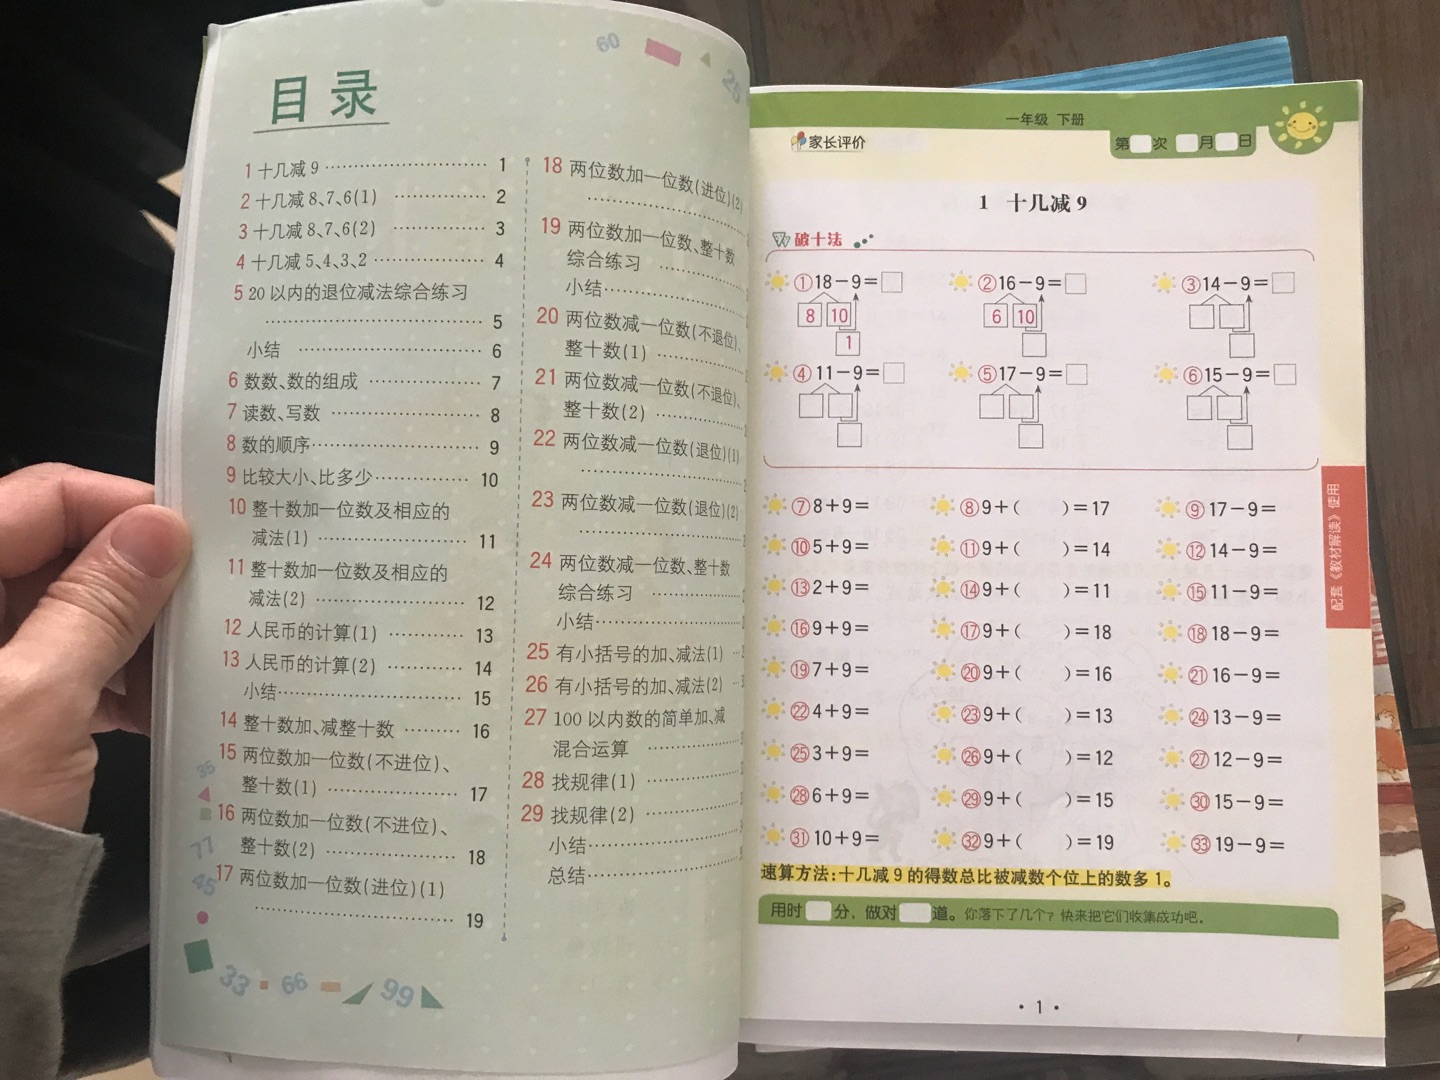 60
25
目录
1 十几减 9 ………………………… 1
2 十几减 8、7、6(1) …………… 2
3 十几减 8、7、6(2) …………… 3
4 十几减 5、4、3、2 ……………… 4
5 20 以内的退位减法综合练习
………………………………… 5
小结 …………………………… 6
6 数数、数的组成 ……………… 7
7 读数、写数 …………………… 8
8 数的顺序……………………… 9
9 比较大小、比多少…………… 10
10 整十数加一位数及相应的
减法(1) …………………… 11
11 整十数加一位数及相应的
减法(2) …………………… 12
12 人民币的计算(1) ………… 13
13 人民币的计算(2) ………… 14
小结………………………… 15
14 整十数加、减整十数 ……… 16
15 两位数加一位数(不进位)、
整十数(1) ………………… 17
16 两位数加一位数(不进位)、
整十数(2) ………………… 18
17 两位数加一位数(进位)(1)
……………………………… 19
35
77
45
33
66
99
18 两位数加一位数(进位)(2)
………………………
19 两位数加一位数、整十数
综合练习 …………
小结…………………
20 两位数减一位数(不退位)、
整十数(1) …………
21 两位数减一位数(不退位)、
整十数(2) …………
22 两位数减一位数(退位)(1)
………………………
23 两位数减一位数(退位)(2)
………………………
24 两位数减一位数、整十数
综合练习 …………
小结…………………
25 有小括号的加、减法(1) …
26 有小括号的加、减法(2) …
27 100 以内数的简单加、减
混合运算 …………
28 找规律(1) …………
29 找规律(2) …………
小结…………………
总结…………………
一年级 下册
家长评价
第 次 月 日
1 十几减 9
破十法
①18－9＝□ ②16－9＝□ ③14－9＝□
8 10 6 10
1
④11－9＝□ ⑤17－9＝□ ⑥15－9＝□
⑦8＋9＝ ⑧9＋( )＝17 ⑨17－9＝
⑩5＋9＝ ⑪9＋( )＝14 ⑫14－9＝
⑬2＋9＝ ⑭9＋( )＝11 ⑮11－9＝
⑯9＋9＝ ⑰9＋( )＝18 ⑱18－9＝
⑲7＋9＝ ⑳9＋( )＝16 ㉑16－9＝
㉒4＋9＝ ㉓9＋( )＝13 ㉔13－9＝
㉕3＋9＝ ㉖9＋( )＝12 ㉗12－9＝
㉘6＋9＝ ㉙9＋( )＝15 ㉚15－9＝
㉛10＋9＝ ㉜9＋( )＝19 ㉝19－9＝
速算方法:十几减 9 的得数总比被减数个位上的数多 1。
用时 分，做对 道。你落下了几个？快来把它们收集成功吧．
· 1 ·
配套《教材解读》使用